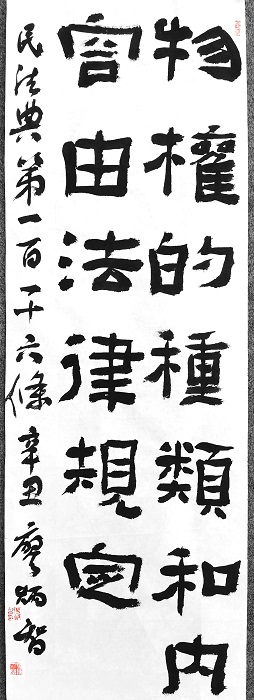 物權的種類和内
容由法律規定
民法典第一百一十六條 辛丑 廖炳智